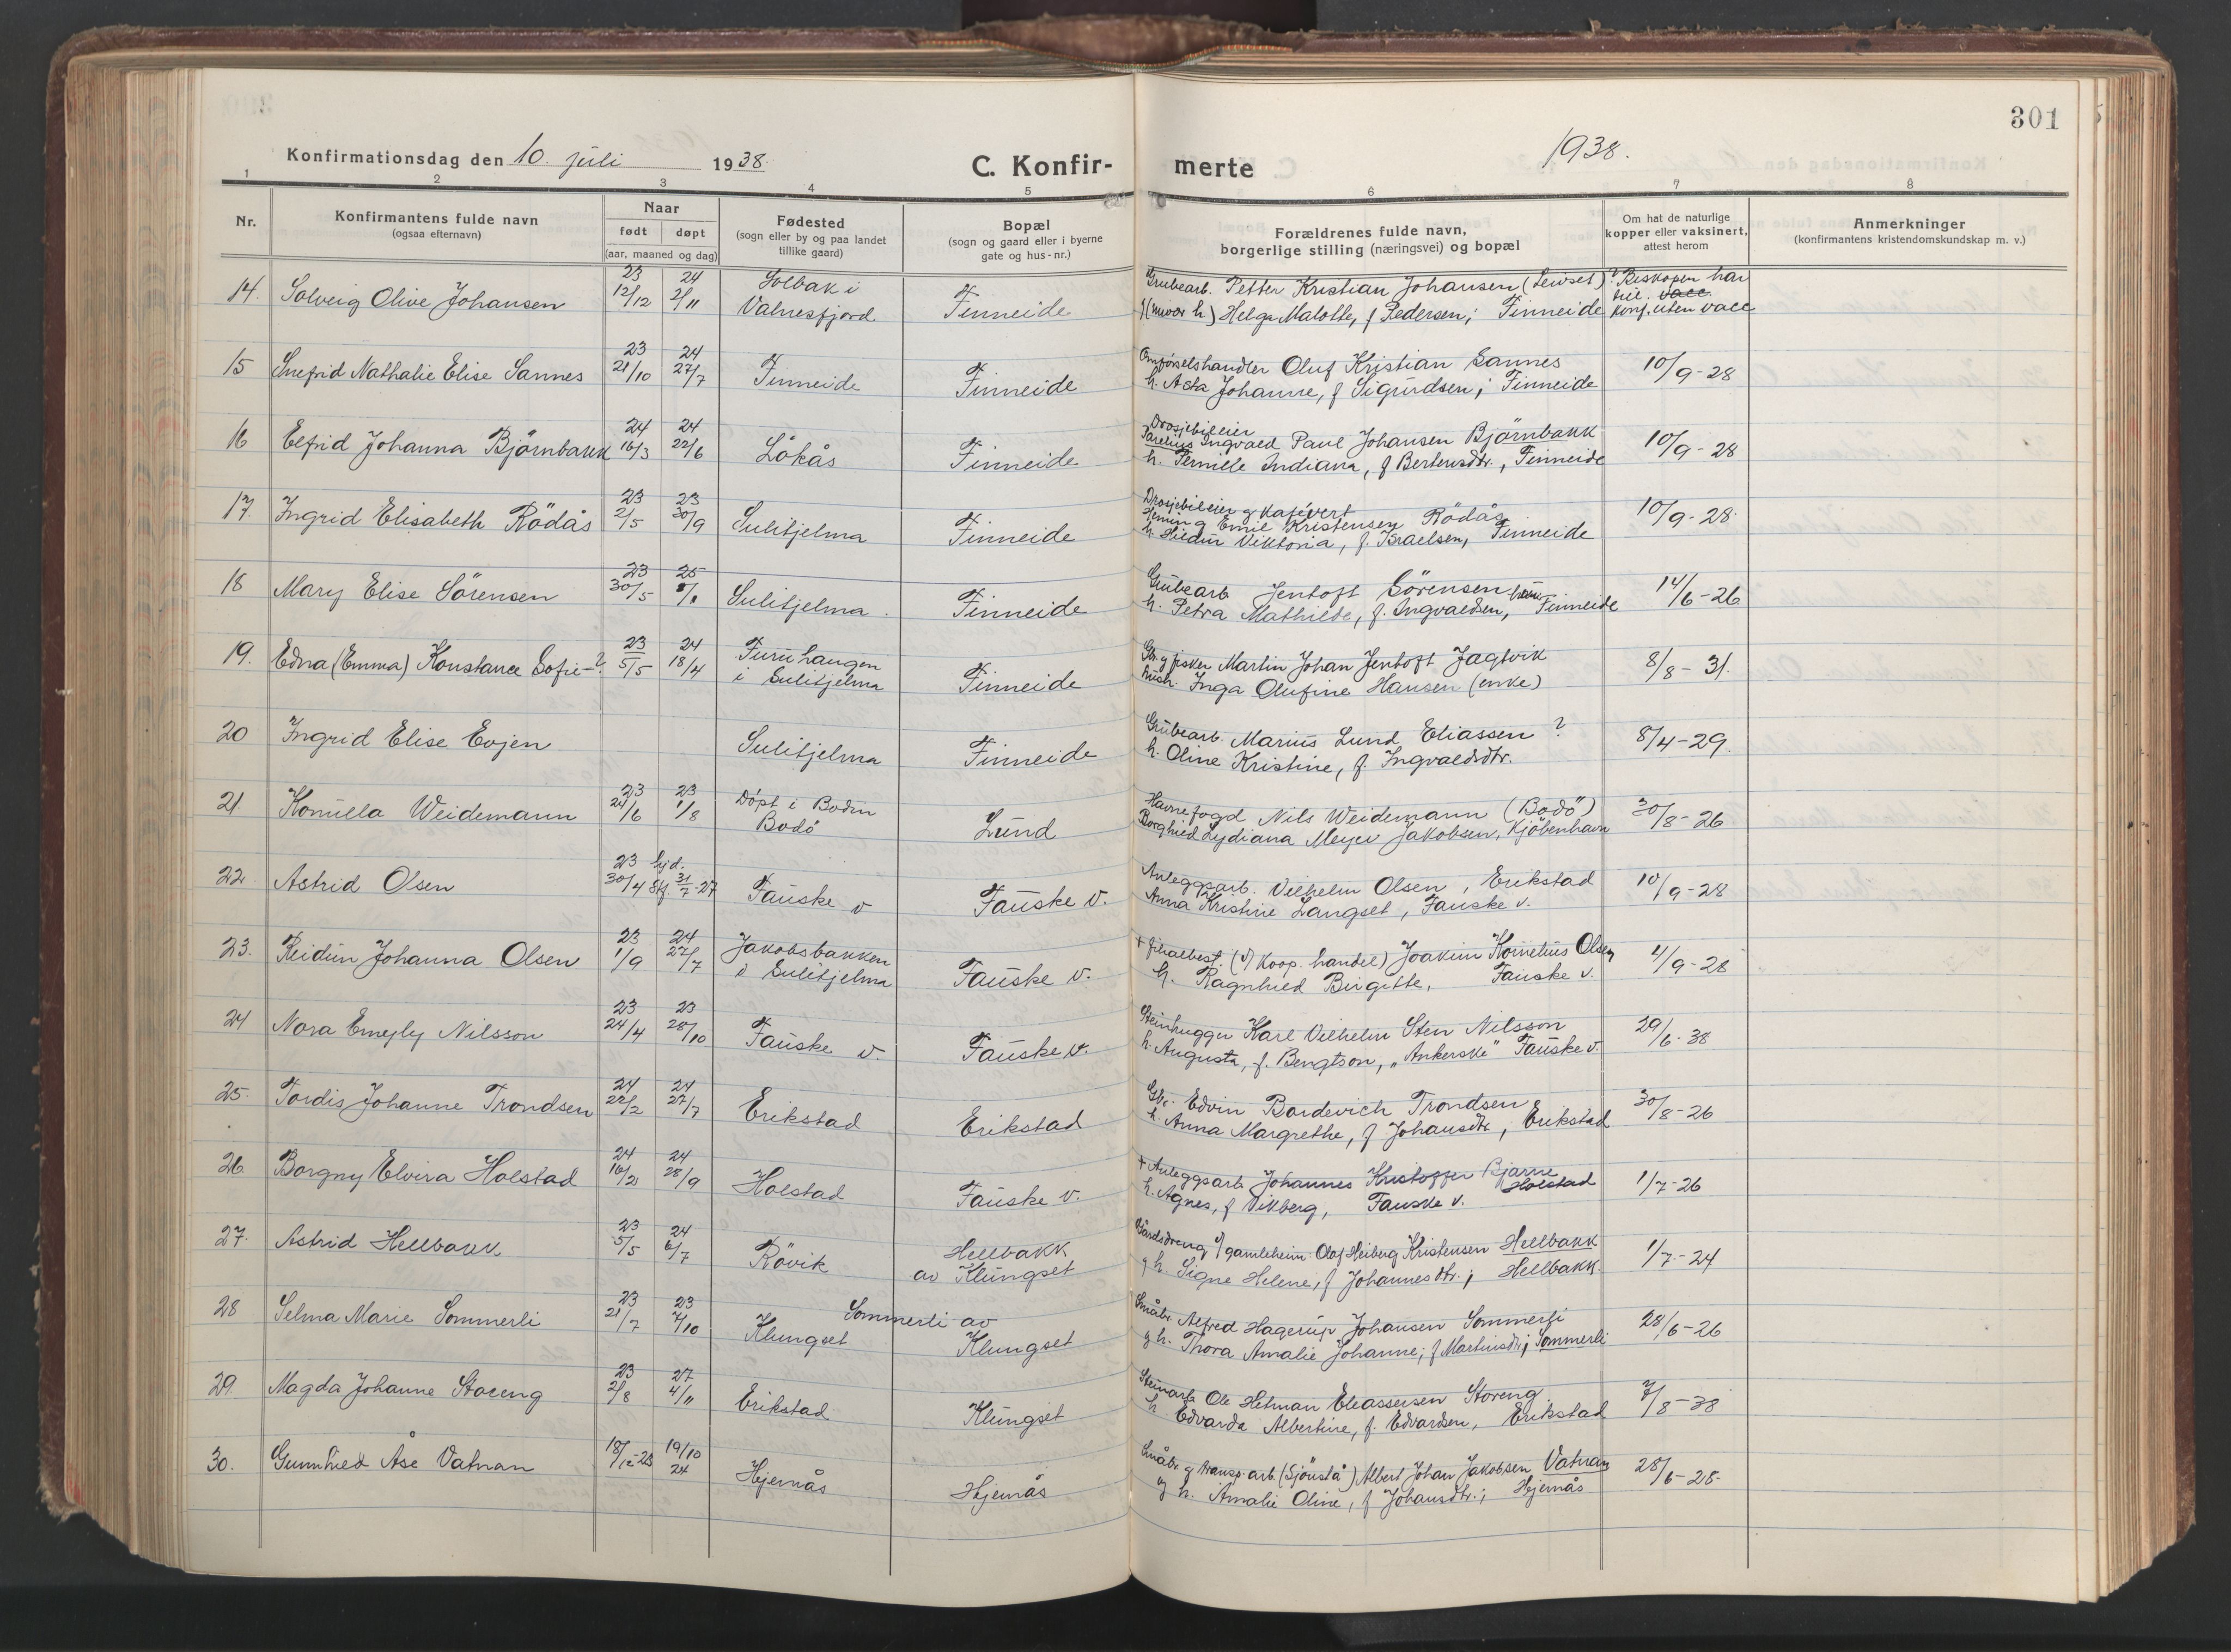 301
Konfirmationsdag den 10. juli 1938.
C. Konfirmerte
1938.
1 2 3 4 5 6 7 8
Nr.
Konfirmantens fulde navn
(ogsaa efternavn)
Naar
født døpt
(aar, maaned og dag)
Fødested
(sogn eller by og paa landet
tillike gaard)
Bopæl
(sogn og gaard eller i byerne
gate og hus-nr.)
Forældrenes fulde navn,
borgerlige stilling (næringsvei) og bopæl
Om hat de naturlige
kopper eller vaksinert,
attest herom
Anmerkninger
(konfirmantens kristendomskundskap m. v.)
14. Solveig Olive Johansen 23 12/12 24 2/11 Solbak i Valnesfjord Finneide
Grubearb. Petter Kristian Johansen (Leivset)
h) Helga Malotte, f Pedersen; Finneide
? Biskopen har
till. vacc.
konf. uten vacc
15 Snefrid Nathalie Elise Sannes 23 21/10 24 27/7 Finneide Finneide
Omførselshandler Oluf Kristian Sannes
h. Asta Johanne, f Sigurdsen; Finneide
10/9-28
16 Elfrid Johanna Björnbakk 24 16/3 24 22/6 Lökås Finneide
Drosjebileier
Parelius Ingvald Paul Johansen Björnbakk
h. Pernille Indiana, f Berteusdtr., Finneide
10/9-28
17. Ingrid Elisabeth Rödås 23 2/5 23 30/9 Sulitjelma Finneide
Drosjebileier g kafévert
Heming Emil Kristensen Rödås
h. Hildur Viktoria, f. Israelsen, Finneide
10/9-28
18 Mary Elise Sörensen 23 30/5 25 1/1 Sulitjelma Finneide
Grubearb Jentoft Sörensen
h. Petra Mathilde, f. Ingvaldsen, Finneide
14/6-26
19. Edna (Emma) Konstance Sofie-? 23 5/5 24 18/4 Furuhaugen i Sulitjelma Finneide
Gbr. g fisker Martin Johan Jentoft Jagtvik
Inga Olufine Hansen (enke)
8/8-31.
20 Ingrid Elise Evjen Sulitjelma Finneide
Grubearb. Marius Lund Eliassen ?
h. Oline Kristine, f. Ingvaldsdtr.
8/4-29.
21. Kornella Weidemann 23 24/6 23 1/8 Döpt i Bodin Bodö Lund
Havnefogd Nils Weidemann (Bodö)
Borghild Lydiana Meyer Jakobsen, Kjöbenhavn
30/8-26
22 Astrid Olsen 23 30/4 hjd. Stf. 31/7-27 Fauske v Fauske v.
Anleggsarb. Vilhelm Olsen, Erikstad
Anna Kristine Langset, Fauske v.
10/9-28
23. Reidun Johanna Olsen 23 1/9 24 27/7 Jakobsbakken i Sulitjelma Fauske v.
+ filialbest. (v/ Koop. handel) Joakim Kornelius Olsen
h. Ragnhild Birgitte, Fauske v.
11/9-28
24 Nora Emyly Nilsson 23 24/4 23 28/10 Fauske v. Fauske v.
Steinhugger Karl Vilhelm Sten Nilsson
h. Augusta, f. Bengtson, "Ankerske" Fauske v.
29/6-38
25. Tordis Johanne Trondsen 24 22/2 24 27/7 Erikstad Erikstad
Gbr. Edvin Bardevich Trondsen
h. Anna Margrethe, f Johansdtr, Erikstad
30/8-26
26 Borgny Elvira Holstad 24 16/2 24 28/9 Holstad Fauske v.
+ Anleggsarb Johannes Kristoffer Bjarne Holstad
h. Agnes, f Vikberg, Fauske v.
1/7-26
27. Astrid Hellbakk 23 5/5 24 6/7 Rövik Hellbakk av Klungset
Gårdsdreng v/ gamleheim Olaf Heiberg Kristensen Hellbakk
g h. Signe Helene, f Johannesdtr.; Hellbakk.
1/7-24
28 Selma Marie Sommerli 23 21/7 23 7/10 Klungset Sommerli av Klungset
Småbr. Alfred Hagerup Johansen Sommerli
g h. Thora Amalie Johanne; f Martinsdtr; Sommerli
28/6-26
29. Magda Johanne Storeng 23 2/8 27 4/11 Erikstad Klungset
Steinarb Ole Hetman Eleassersen Storeng
h Edvarda Albertine, f. Edvardsen, Erikstad
7/8-38
30. Gunnhild Åse Vatnan 18/12-23 19/10 24 Hjemås Hjemås
Småbr g transp. arb. (Sjönstå) Albert Johan Jakobsen Vatnan
g h. Amalie Oline, f Johansdtr.; Hjemås
28/6-28.